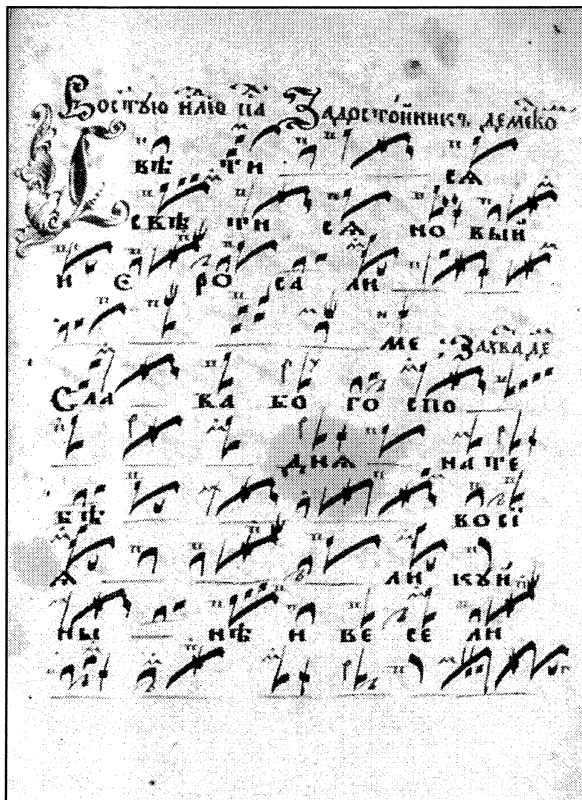 Во стꙋю нлю па Задостойникъ демеко
С вѣ ти сѧ
свѣ ти сѧ но вый
и є ро са ли
ме Захва де
Сла ва бо го спо
днѧ на те
бѣ во сї
ѧ ли куй
ны нѣ и ве се ли